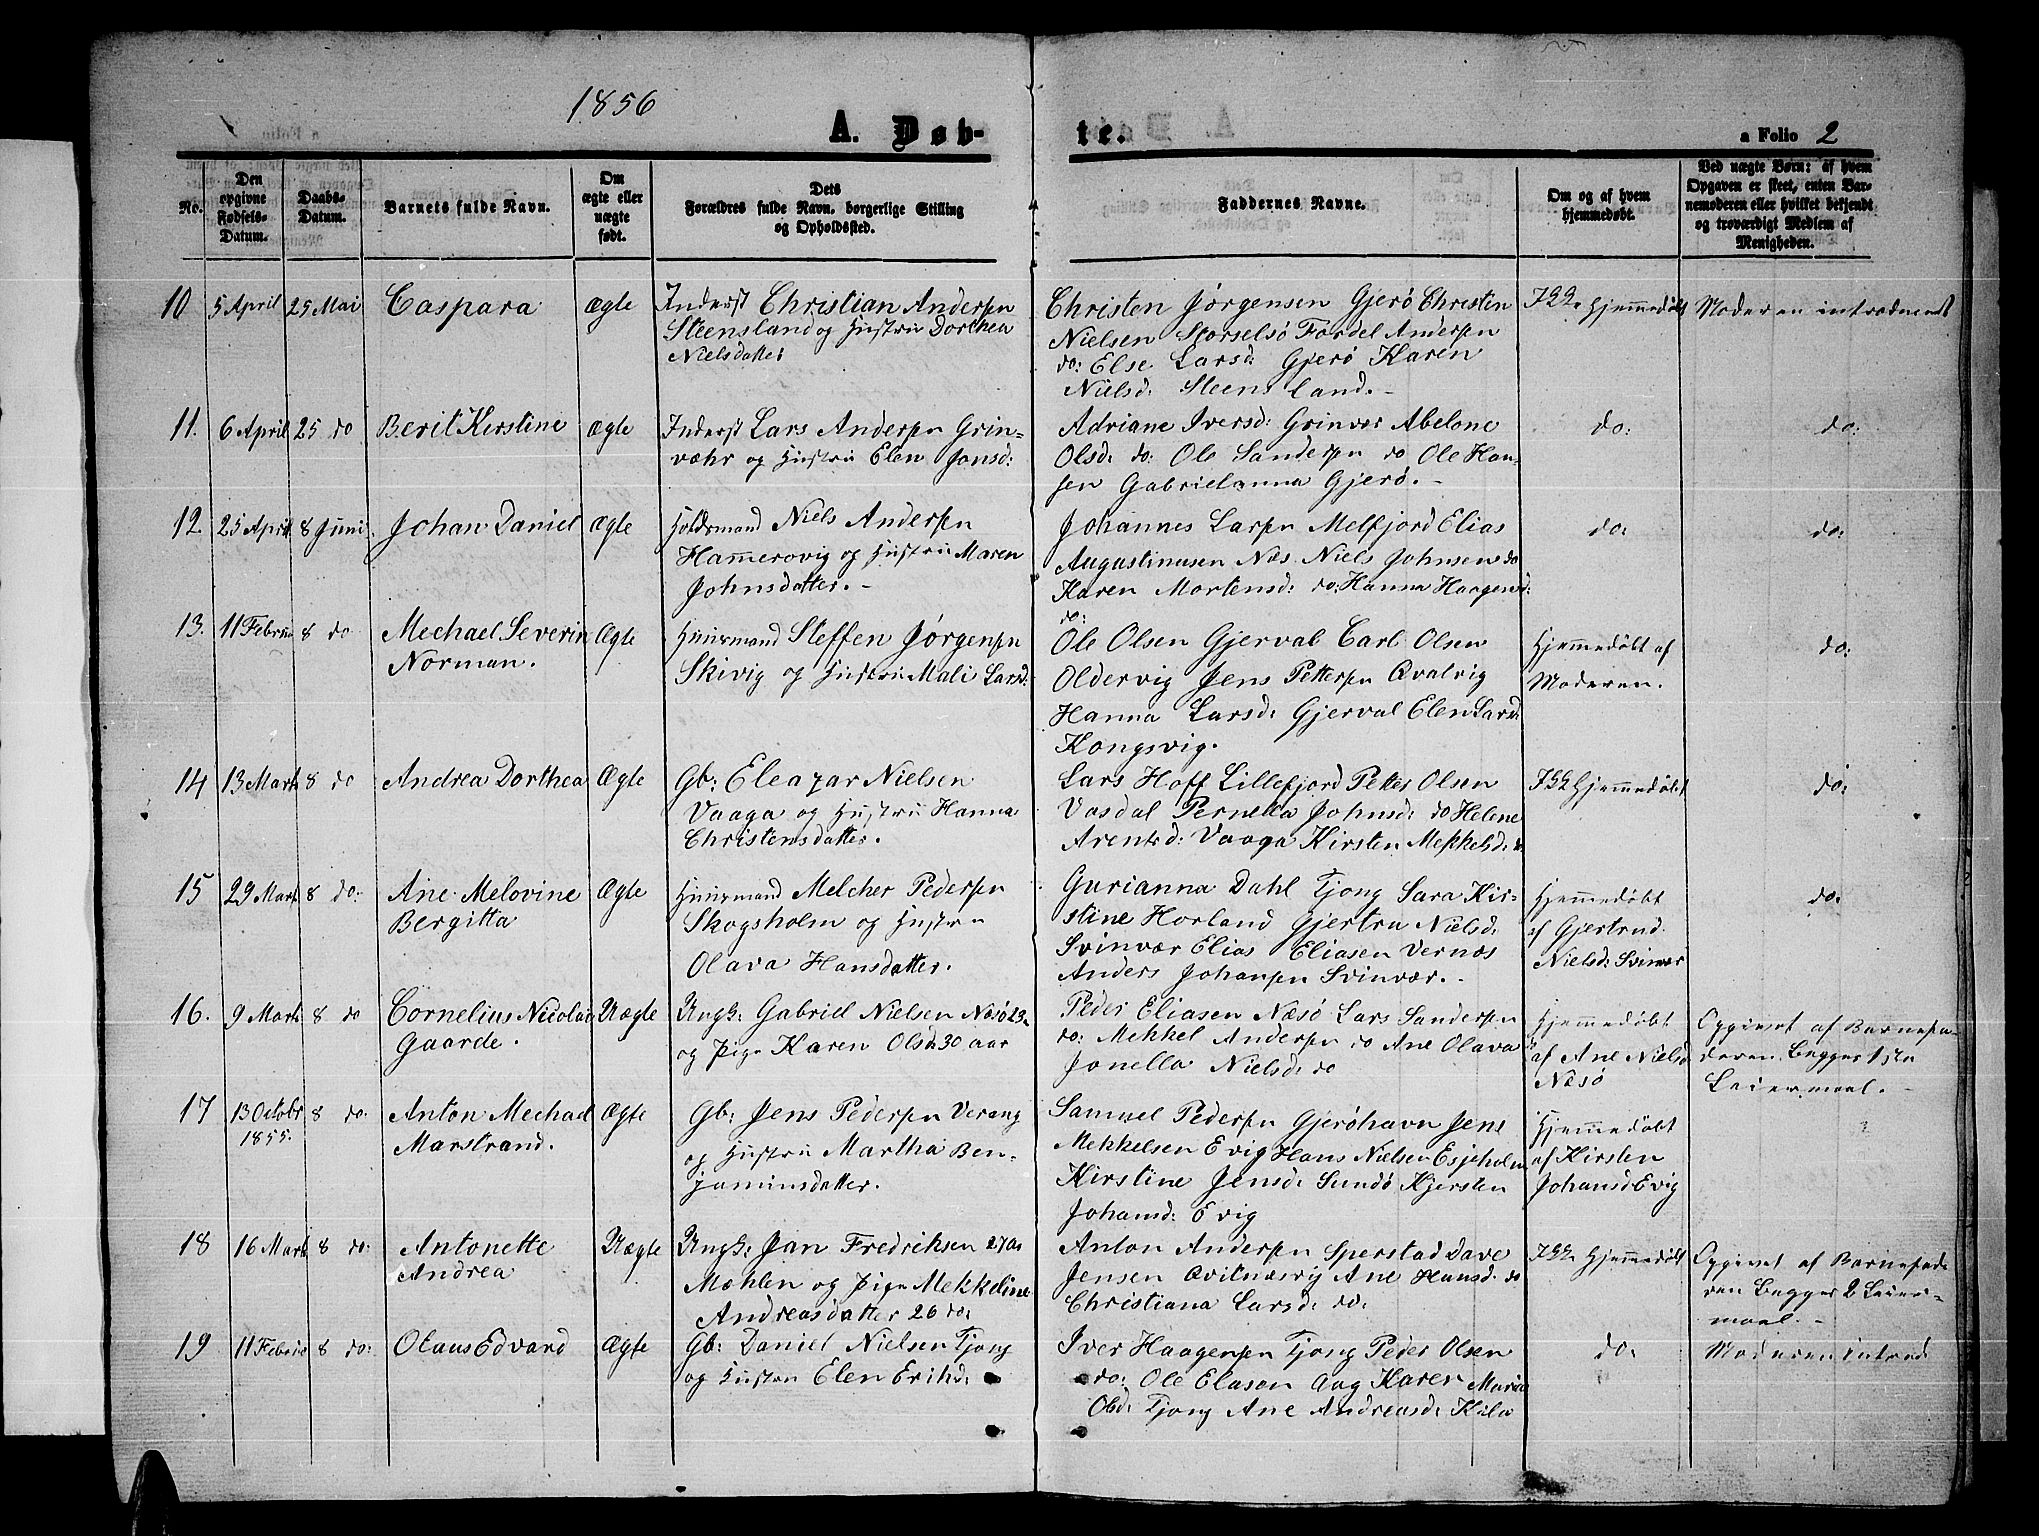 1856
A. Døb-
te.
a Folio 2
No.
Den
opgivne
Fødsels-
Datum.
Daabs-
Datum.
Barnets fulde Navn.
Om
ægte eller
uægte
født.
Dets
Forældres fulde Navn, borgerlige Stilling
og Opholdssted.
Faddernes Navne.
Om og af hvem
hjemmedøbt.
Ved uægte Børn: af hvem
Opgaven er skeet, enten Bar-
nemoderen eller hvilket bekjendt
og troværdigt Medlem af
Menigheden.
10 5 April 25 Mai Caspara Ægte
Inderst Christian Andersen
Steensland og Hustru Dorthea
Nielsdatter
Christen Jørgensen Gjerö Christen
Nielsen Storselsö Fordel Andersen
do: Else Larsd: Gjerö Karen
Nielsd: Steensland.-
Hjemmedøbt
Moderen introduceret
11. 6 April 25 do Berit Kirstine Ægte
Inderst Lars Andersen Grin-
væhr og Hustru Elen Jonsd:
Adriane Iversd: Grinvær Abelone
Olsd: do: Ole Sandersen do Ole Han-
sen Gabrielanna Gjerö.-
do:
do:
12. 25 April 8 Juni Johan Daniel Ægte
Holdsmand Niels Andersen
Hammerovig og Hustru Maren
Johnsdatter.-
Johannes Larsen Melfjord Elias
Augustinusen Næs Niels Johnsen do
Karen Mortensd: do: Hanna Haagensd:
do:
do:
do:
13. 11 Februar 8 do Mechael Severin
Norman. Ægte
Huusmand Steffen Jørgensen
Skivig og Hustru Mali Larsd:
Ole Olsen Gjerval Carl Olsen
Oldervig Jens Pettersen Qvalvig
Hanna Larsd: Gjerval Elen Larsd:
Kongsvig.
Hjemmedøbt af
Moderen.
do:
14 13 Marts 8 do Andrea Dorthea Ægte
Gb: Eleazar Nielsen
Vaaga og Hustru Hanna
Christensdatter.
Lars Hoff Lillefjord Peter Olsen
Vasdal Pernella Johnsd: do Helene
Arentsd: Vaaga Kirsten Mekkelsd:
Hjemmedøbt
do:
15 29 Marts 8 do: Ane Melovine
Bergitta Ægte
Huusmand Melcher Pedersen
Skogsholm og Hustru
Olava Hansdatter.
Gurianna Dahl Tjong Sara Kir-
stine Horland Gjertru Nielsd:
Svinvær Elias Eliasen Vernæs
Anders Johansen Svinvær.-
Hjemmedøbt
af Gjertrud
Nielsd: Svinvær
do:
16. 9 Marts 8 do Cornelius Nicolai
Gaarde. Uægte
Ungk: Gabriel Nielsen Næsö 23
og Pige Karen Olsd: 30 aar
Peder Eliasen Næsö Lars Sandersen
do: Mekkel Andersen do Ane Olava
Jonella Nielsd: do
Hjemmedøbt
af Ane Nielsd
Næsö
Opgivet af Barnefa-
deren. Begges 1ste
Leiermaal.-
17 13 Octobr
1855. 8 do: Anton Mechael
Marstrand. Ægte
Gb: Jens Pedersen Verang
og Hustru Martha Ben-
jaminsdatter.
Samuel Pedersen Gjeröhavn Jens
Mekkelsen Evig Hans Nielsen Esjeholm
Kirstine Jensd: Sundö Kjersten
Johansd: Evig
Hjemmedøbt
af Kirsten
Johansd Evig
18 16 Marts 8 do: Antonette
Andrea Uægte
Ungk: Jan Fredriksen 27 a
Mæhlen og Pige Mekkeline
Andreasdatter 26 do:
Anton Andersen Sperstad Dave
Jensen Qvitnæsvig Ane Hansd: do
Christiana Larsd: do:
Hjemmedøbt
Opgivet af Barnefade
ren Begges 2 Leier-
maal.-
19 11 Februar 8 do: Olaus Edvard Ægte
Gb: Daniel Nielsen Tjong
og Hustru Elen Eriksd:
Iver Haagensen Tjong Peder Olsen
do: Ole Elasen Aag Karen Maria
Olsd: Tjong Ane Andreasd: Kila
do:
Moderen introd